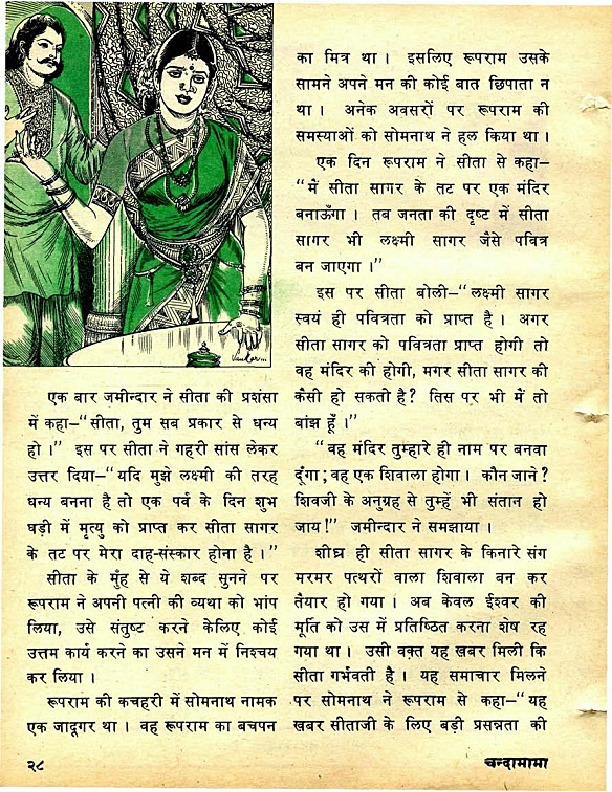 Vankaram
एक बार जमीन्दार ने सीता की प्रशंसा
में कहा–“सीता, तुम सब प्रकार से धन्य
हो।” इस पर सीता ने गहरी सांस लेकर
उत्तर दिया–“यदि मुझे लक्ष्मी की तरह
धन्य बनना है तो एक पर्व के दिन शुभ
घड़ी में मृत्यु को प्राप्त कर सीता सागर
के तट पर मेरा दाह-संस्कार होना है।”
सीता के मूँह से ये शब्द सुनने पर
रूपराम ने अपनी पत्नी की व्यथा को भांप
लिया, उसे संतुष्ट करने केलिए कोई
उत्तम कार्य करने का उसने मन में निश्चय
कर लिया।
रूपराम की कचहरी में सोमनाथ नामक
एक जादूगर था। वह रूपराम का बचपन
का मित्र था। इसलिए रूपराम उसके
सामने अपने मन की कोई बात छिपाता न
था। अनेक अवसरों पर रूपराम की
समस्याओं को सोमनाथ ने हल किया था।
एक दिन रूपराम ने सीता से कहा–
“मैं सीता सागर के तट पर एक मंदिर
बनाऊँगा। तब जनता की दृष्ट में सीता
सागर भी लक्ष्मी सागर जैसे पवित्र
बन जाएगा।”
इस पर सीता बोली–“लक्ष्मी सागर
स्वयं ही पवित्रता को प्राप्त है। अगर
सीता सागर को पवित्रता प्राप्त होगी तो
वह मंदिर की होगी, मगर सीता सागर की
कैसी हो सकती है? तिस पर भी मैं तो
बांझ हूँ।”
“वह मंदिर तुम्हारे ही नाम पर बनवा
दूंगा; वह एक शिवाला होगा। कौन जाने?
शिवजी के अनुग्रह से तुम्हें भी संतान हो
जाय!” जमीन्दार ने समझाया।
शीघ्र ही सीता सागर के किनारे संग
मरमर पत्थरों वाला शिवाला बन कर
तैयार हो गया। अब केवल ईश्वर की
मूर्ति को उस में प्रतिष्ठित करना शेष रह
गया था। उसी वक्त यह ख़बर मिली कि
सीता गर्भवती है। यह समाचार मिलने
पर सोमनाथ ने रूपराम से कहा–“यह
ख़बर सीताजी के लिए बड़ी प्रसन्नता की
२८
चन्दामामा